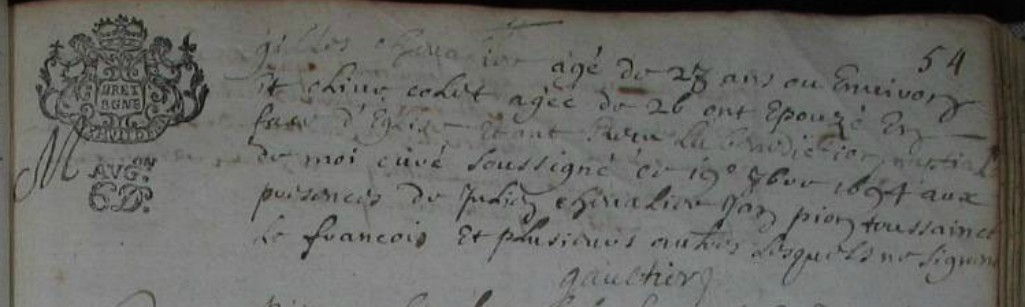 54
BRET
AGNE
AUG.ON
6D.
gilles chevalier agé de 23 ans ou Environ
Et colet agée de 26 ont Epouzé En
face d'Eglise Et ont la benediction nuptial
de moi curé soussigné ce 19e 1694 aux
presences de Julien chevalier Jan pion toussainct
le francois Et plusieurs autres lesquels ne signent
gaultier